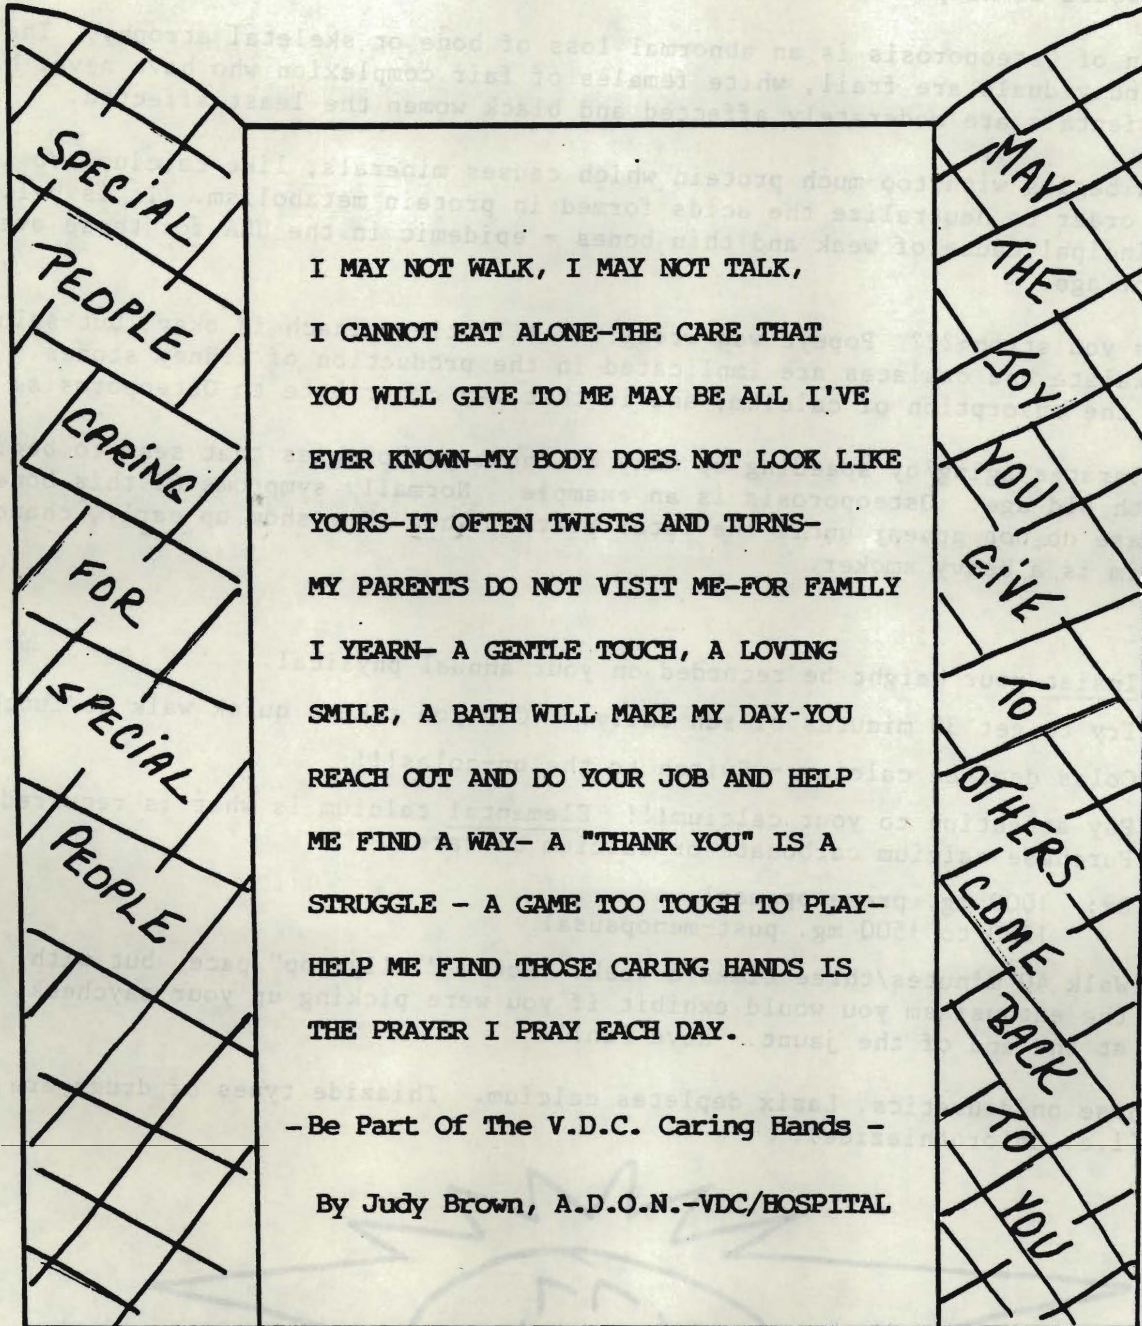 SPECIAL
PEOPLE
CARING
FOR
SPECIAL
PEOPLE
I MAY NOT WALK, I MAY NOT TALK,
I CANNOT EAT ALONE-THE CARE THAT
YOU WILL GIVE TO ME MAY BE ALL I'VE
EVER KNOWN-MY BODY DOES NOT LOOK LIKE
YOURS-IT OFTEN TWISTS AND TURNS-
MY PARENTS DO NOT VISIT ME-FOR FAMILY
I YEARN- A GENTLE TOUCH, A LOVING
SMILE, A BATH WILL MAKE MY DAY-YOU
REACH OUT AND DO YOUR JOB AND HELP
ME FIND A WAY- A "THANK YOU" IS A
STRUGGLE - A GAME TOO TOUGH TO PLAY--
HELP ME FIND THOSE CARING HANDS IS
THE PRAYER I PRAY EACH DAY.
-Be Part Of The V.D.C. Caring Hands -
By Judy Brown, A.D.O.N.-VDC/HOSPITAL
MAY
THE
JOY
YOU
GIVE
TO
OTHERS
COME
BACK
TO
YOU